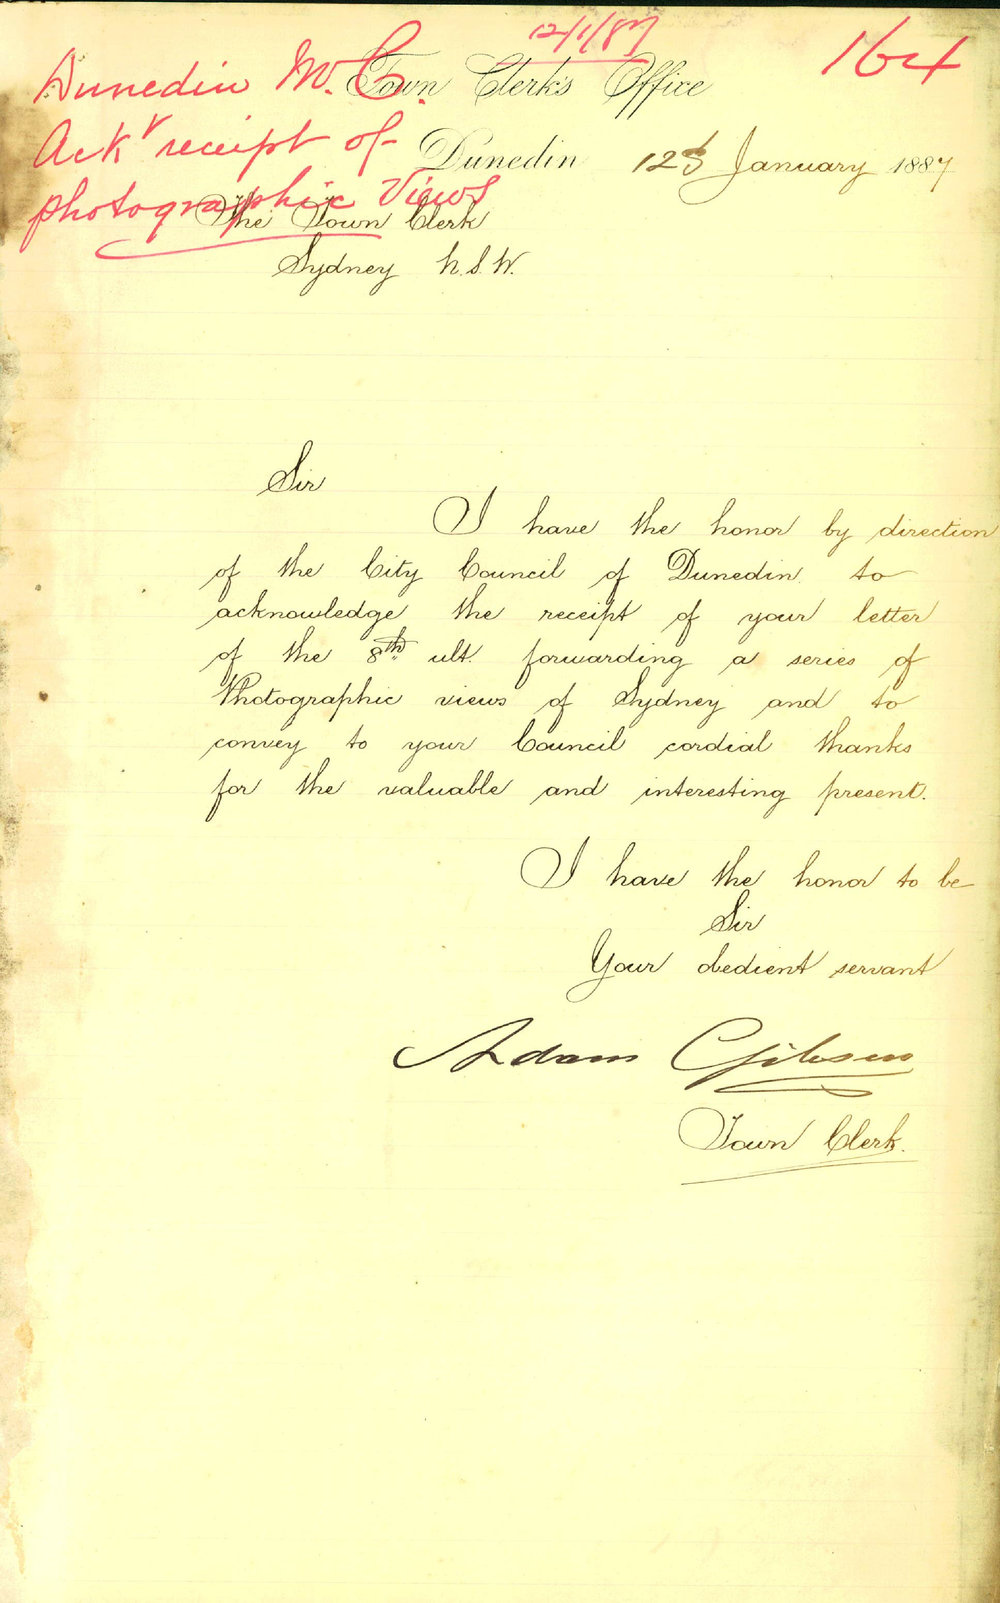 12/1/87
164
Dunedin M.C.
Ack receipt of
photographic views
Town Clerk's Office
Dunedin 12th January 1887
The Town Clerk
Sydney N.S.W.
Sir
I have the honor by direction
of the City Council of Dunedin to
acknowledge the receipt of your letter
of the 8th ult. forwarding a series of
Photographic views of Sydney and to
convey to your Council cordial thanks
for the valuable and interesting present.
I have the honor to be
Sir
Your obedient servant
Adam Gibson
Town Clerk.